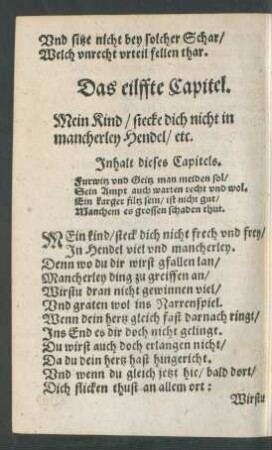 Vnd sitze nicht bey solcher Schar/
Welch vnrecht vrteil fellen thar.
Das eilffte Capitel.
Mein Kind / stecke dich nicht in
mancherley Hendel / etc.
Inhalt dieses Capitels.
Furwitz vnd Geitz man meiden sol/
Sein Ampt auch warten recht vnd wol.
Ein karger filtz sein / ist nicht gut/
Manchem es grossen schaden thut.
MEin kind / steck dich nicht frech vnd frey/
In Hendel viel vnd mancherley.
Denn wo du dir wirst gfallen lan/
Mancherley ding zu greiffen an/
Wirstu dran nicht gewinnen viel/
Vnd graten wol ins Narrenspiel.
Wenn dein hertz gleich fast darnach ringt/
Ins End es dir doch nicht gelingt.
Du wirst auch doch erlangen nicht/
Da du dein hertz hast hingericht.
Vnd wenn du gleich jetzt hie / bald dort/
Dich flicken thust an allem ort :
Wirstu